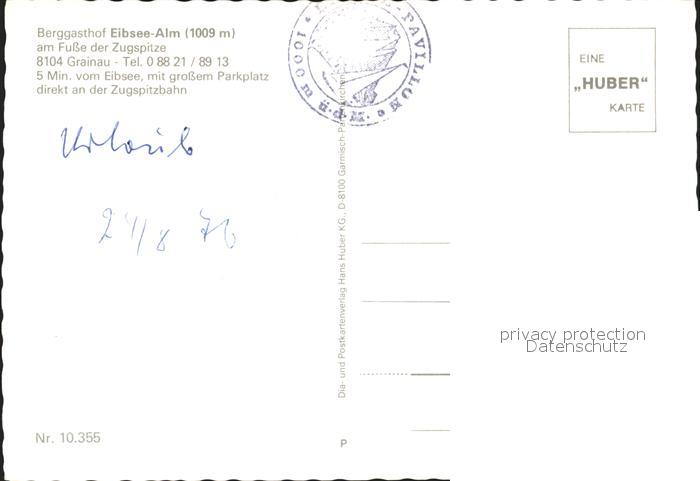 Berggasthof Eibsee-Alm (1009 m)
am Fuße der Zugspitze
8104 Grainau - Tel. 0 88 21 / 89 13
5 Min. vom Eibsee, mit großem Parkplatz
direkt an der Zugspitzbahn
Urlaub
PAVILLON • ü.d.M. 1000 m •
EINE
„HUBER“
KARTE
Dia- und Postkartenverlag Hans Huber KG., D-8100 Garmisch-Partenkirchen
privacy protection
Datenschutz
Nr. 10.355
P